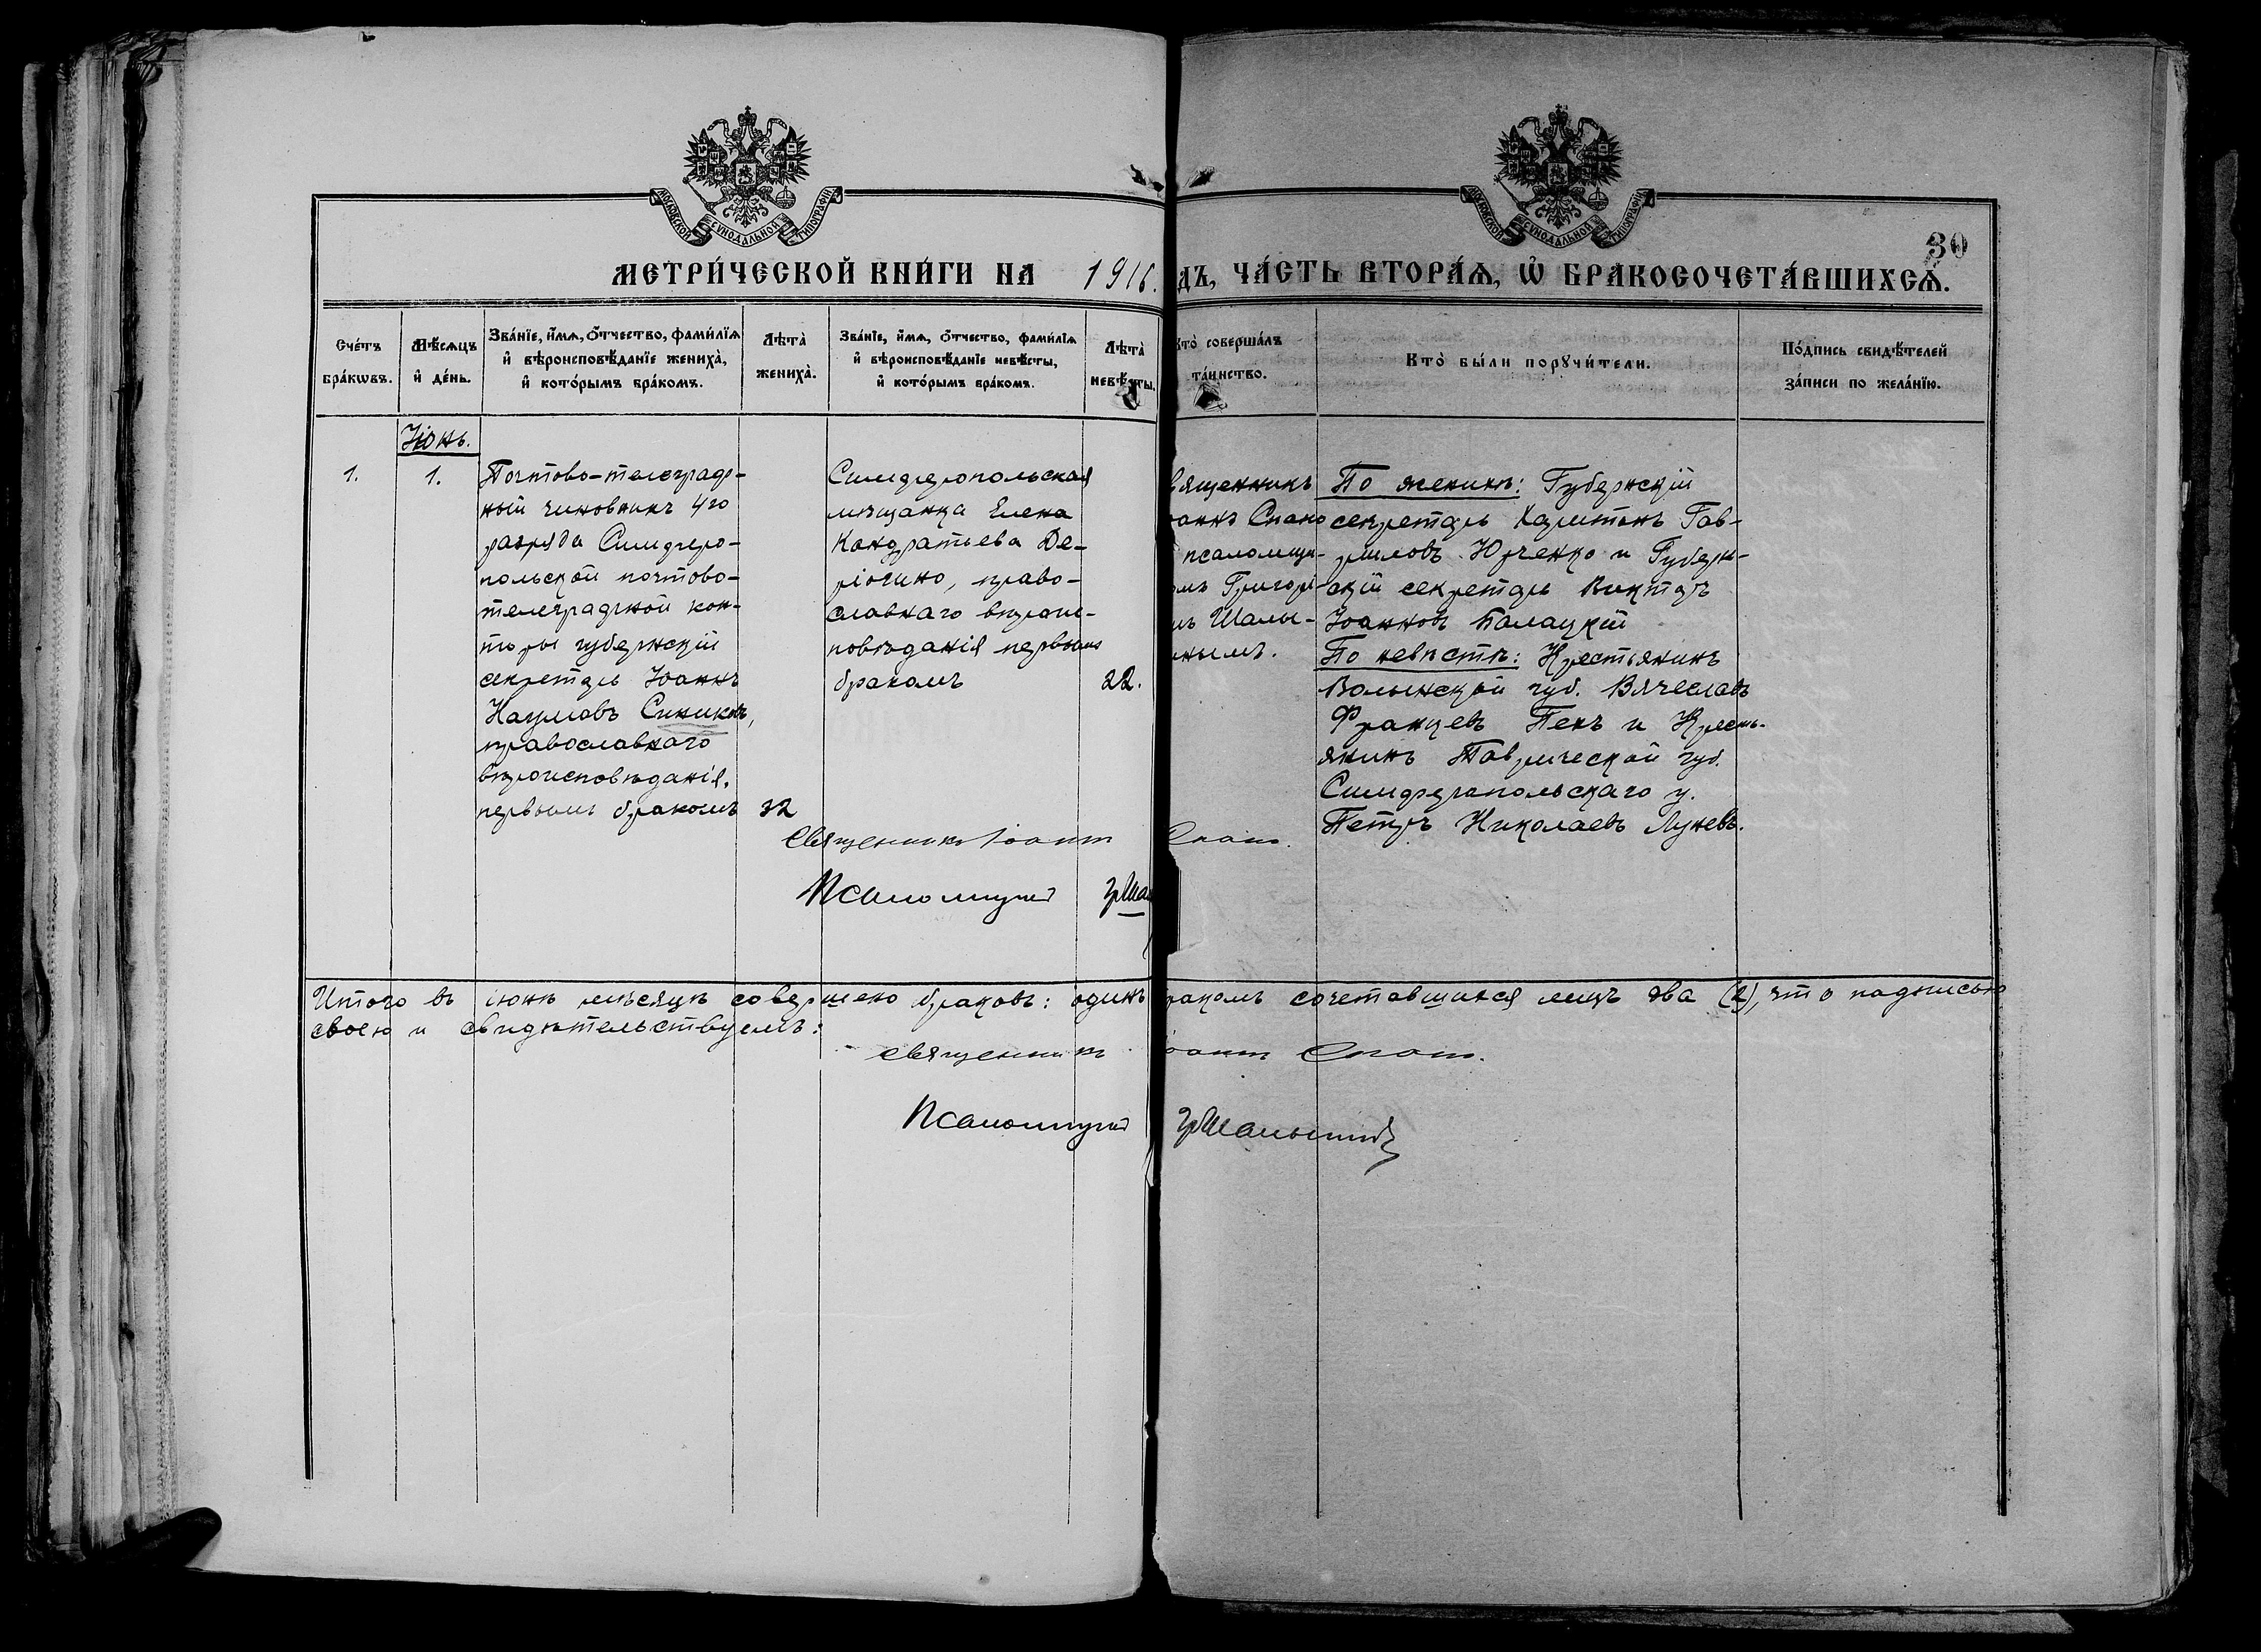 МОСКОВСКОЙ СѴНОДАЛЬНОЙ ТИПОГРАФІИ
МОСКОВСКОЙ СѴНОДАЛЬНОЙ ТИПОГРАФІИ
30
МЕТРИ́ЧЕСКОЙ КНИ́ГИ НА 1916.
ДЪ, ЧА́СТЬ ВТОРА́Ѧ, Ѡ҆ БРАКОСОЧЕТА́ВШИХСѦ.
Сче́тъ бра́кѡвъ.
Мѣ́сѧцъ и҆ де́нь.
Зва́нїе, и҆́мѧ, ѻ҆́тчество, фами́лїѧ
и҆ вѣроисповѣ́данїе жениха̀,
и҆ кото́рымъ бра́комъ.
Лѣта̀ жениха̀.
Зва́нїе, и҆́мѧ, ѻ҆́тчество, фами́лїѧ
и҆ вѣроисповѣ́данїе невѣ́сты,
и҆ кото́рымъ бра́комъ.
Лѣта̀ невѣ́сты.
кто̀ соверша́лъ
та́инство.
Кто̀ бы́ли порꙋчи́тели.
По́дпись свидѣ́телей
за́писи по жела́нїю.
Іюнь.
1.
1.
Почтово-телеграф-
ный чиновникъ 4го
разряда Симферо-
польской почтово-
телеграфной кон-
торы губернскій
секретарь Іоаннъ
Наумовъ Синиковъ,
православнаго
вѣроисповѣданія,
первымъ бракомъ
32
Симферопольская
мѣщанка Елена
Кондратьева Де-
ріогино, право-
славнаго вѣроис-
повѣданія первымъ
бракомъ
22.
вященникъ
оаннъ Спано
псаломщи-
омъ Григорі-
мъ Шалы-
нымъ.
По женихѣ: Губернскій
секретарь Харитонъ Гав-
риловъ Юрченко и Губерн-
скій секретарь Викторъ
Іоанновъ Палацкій
По невѣстѣ: Крестьянинъ
Волынской губ. Вячеславъ
Францевъ Пехъ и Кресть-
янинъ Таврической губ.
Симферопольскаго у.
Петръ Николаевъ Луневъ.
Священникъ Іоаннъ Спано.
Псаломщикъ ГрШа
Итого въ іюнѣ мѣсяцѣ совершено браковъ: одинъ ракомъ сочетавшихся лицъ два (2), что подписью
своею и свидѣтельствуемъ:
Священникъ оаннъ Спано.
Псаломщикъ ГрШалынинъ